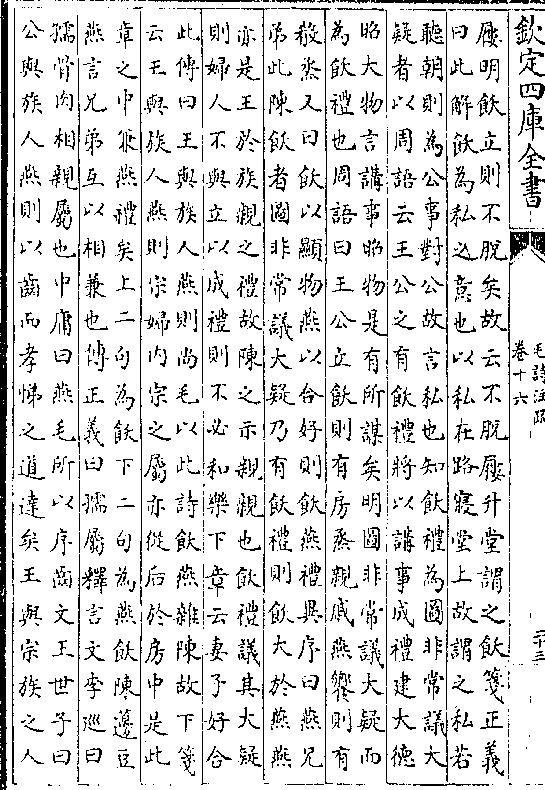 欽定四庫全書
毛詩注疏
卷十六
屨明飫立則不脫矣故云不脫屨升堂謂之飫箋正義
曰此解飫為私之意也以私在路寢堂上故謂之私若
聽朝則為公事對公故言私也知飫禮為圖非常議大
疑者以周語云王公之有飫禮將以講事成禮建大德
昭大物言講事昭物是有所謀矣明圖非常議大疑而
為飫禮也周語曰王公立飫則有房烝親戚燕饗則有
殽烝又曰飫以顯物燕以合好則飫燕禮異序曰燕兄
弟此陳飫者圖非常議大疑乃有飫禮則飫大於燕燕
亦是王於族親之禮故陳之示親親也飫禮議其大疑
則婦人不與立以成禮則不必和樂下章云妻子好合
此傳曰王與族人燕則尚毛以此詩飫燕雜陳故下箋
云王與族人燕則宗婦內宗之屬亦從后於房中是此
章之中兼燕禮矣上二句為飫下二句為燕飫陳籩豆
燕言兄弟互以相兼也傳正義曰孺屬釋言文李巡曰
孺骨肉相親屬也中庸曰燕毛所以序齒文王世子曰
公與族人燕則以齒而孝悌之道達矣王與宗族之人